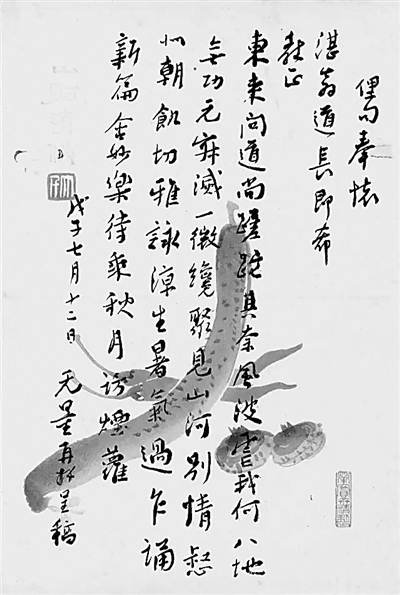 俚句奉懷
湛翁道長即希
教正
東来问道尚蹉跎其奈風波我何八地
無功元寂滅一微纔聚見山河别情惄
似朝飢切雅詠涼生暑氣過乍誦
新篇含妙樂待乘秋月訪煙蘿
戊子七月十二日 无量再拜呈稿